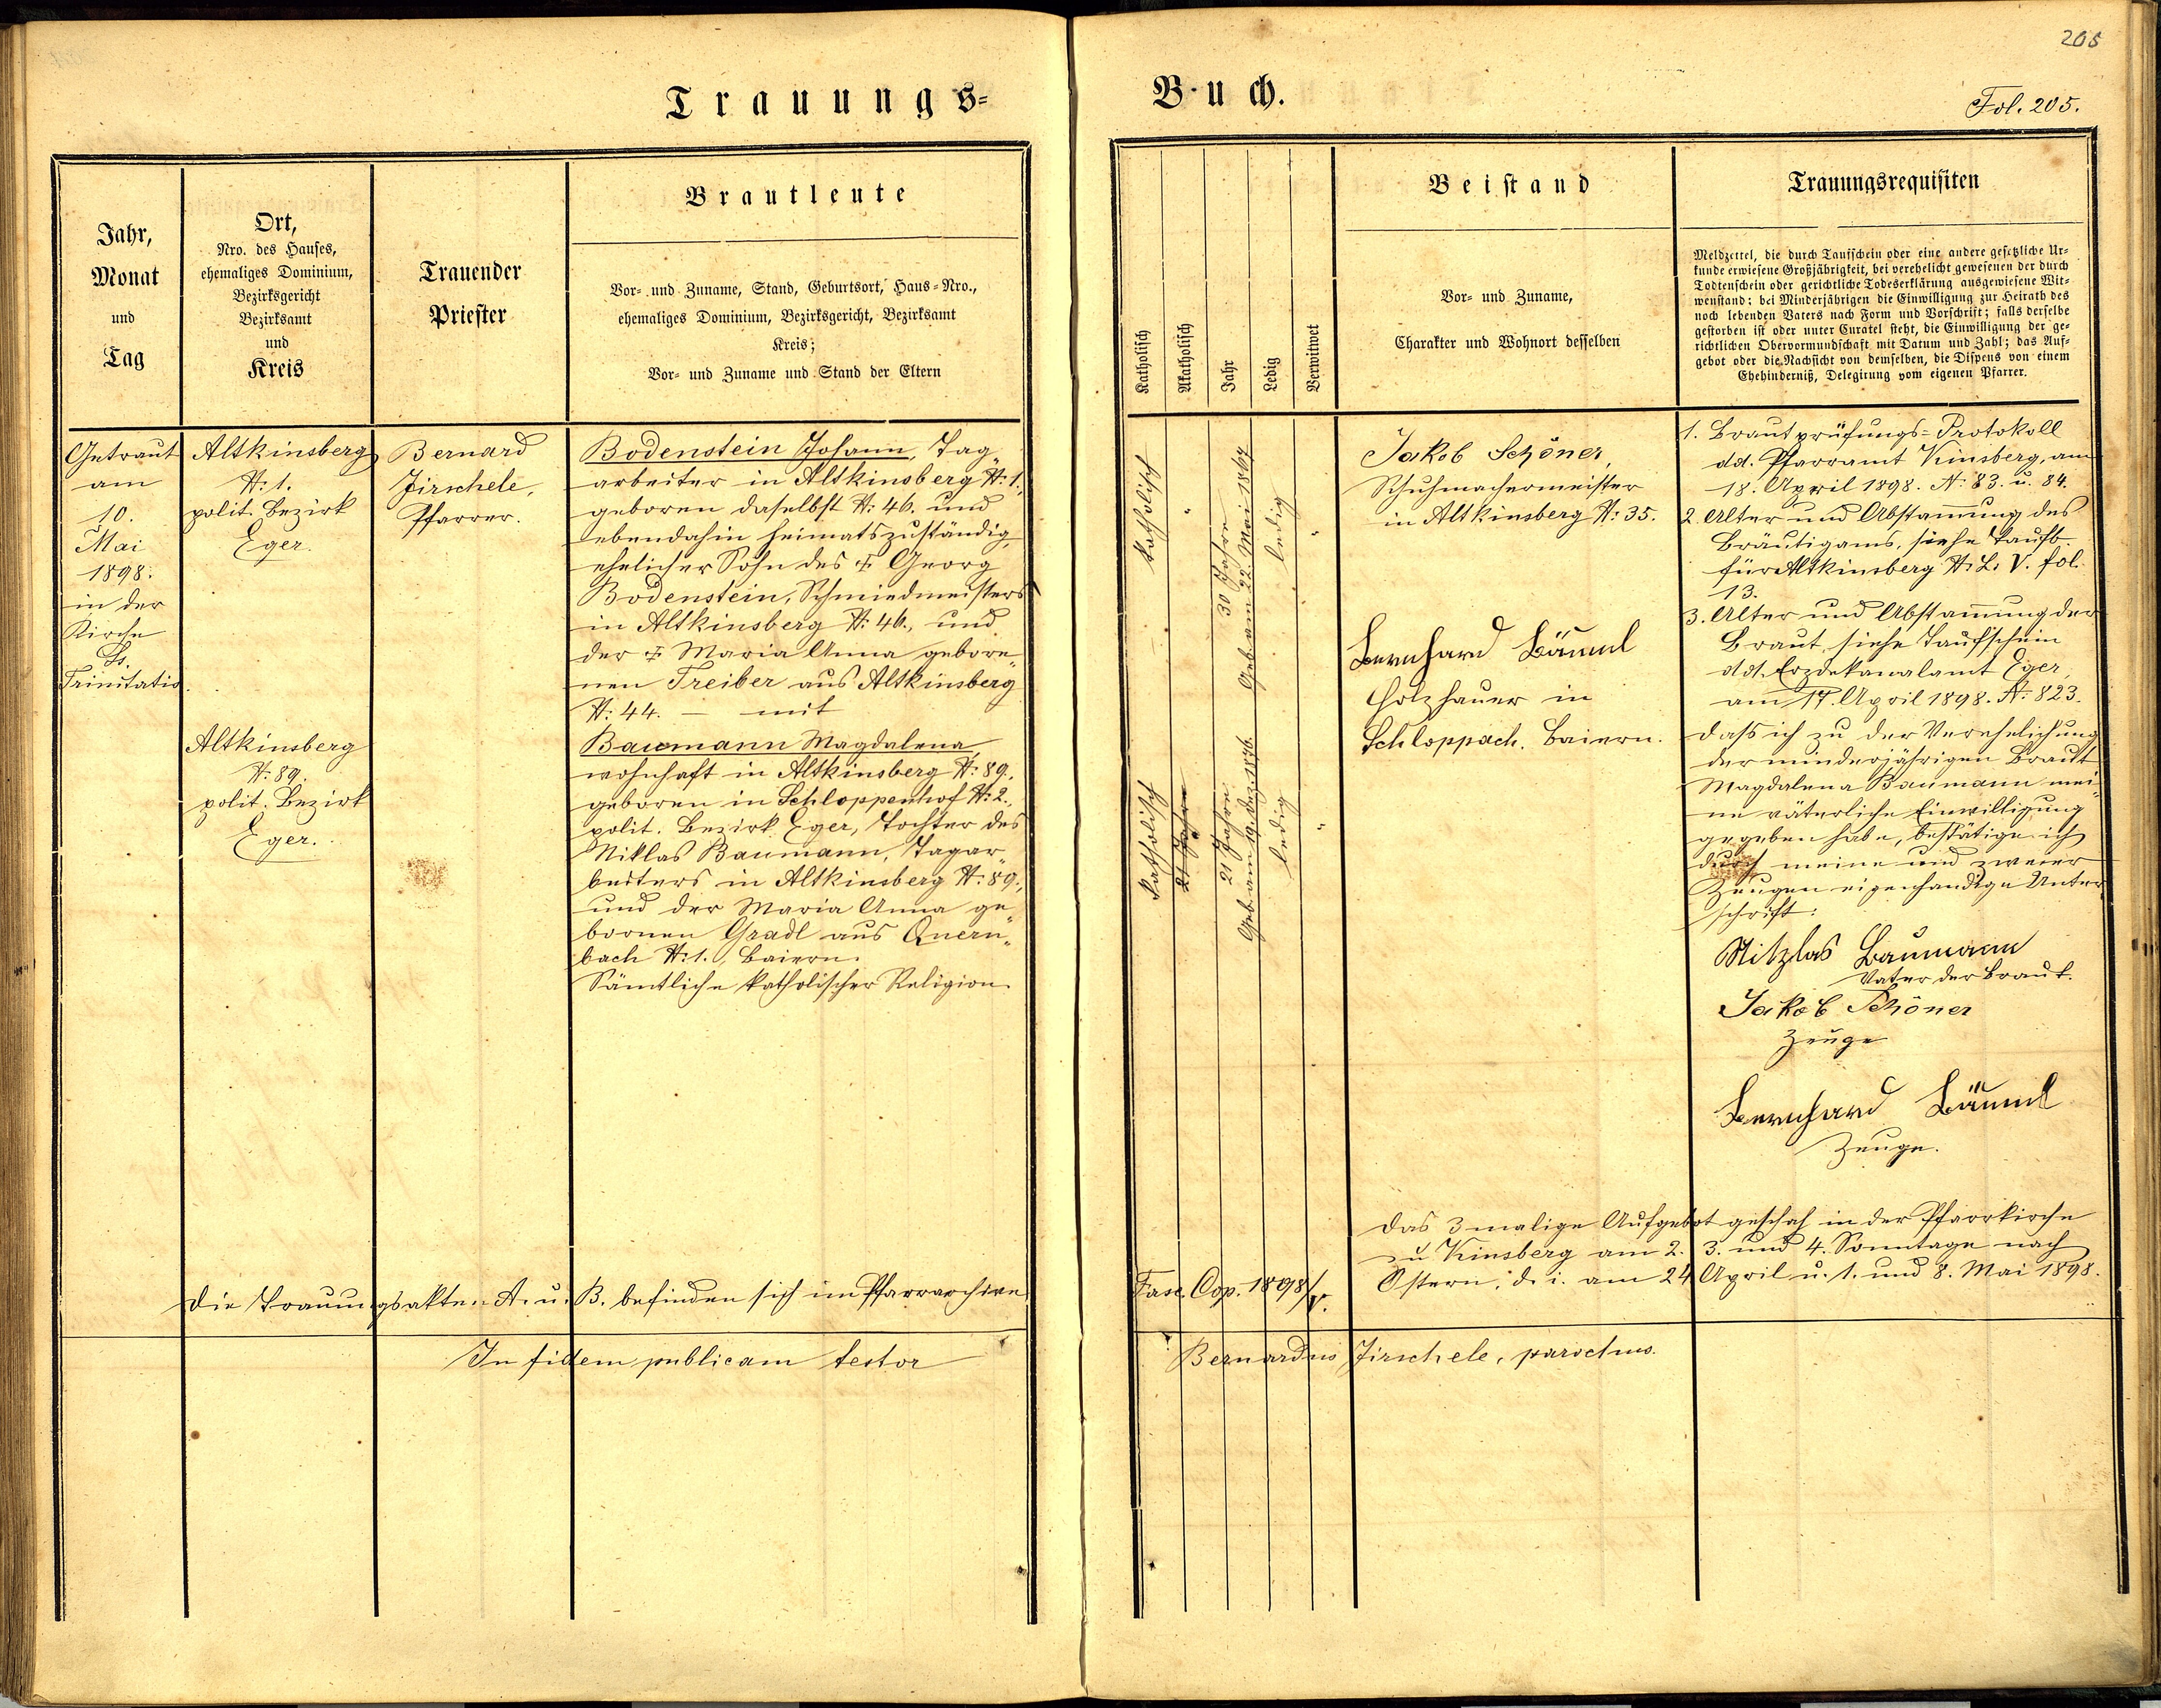 205
Trauungs=
Buch.
Fol. 205.
Jahr,
Monat
und
Tag
Ort,
Nro. des Hauses,
ehemaliges Dominium,
Bezirksgericht
Bezirksamt
und
Kreis
Trauender
Priester
Brautleute
Vor- und Zuname, Stand, Geburtsort, Haus-Nro.,
ehemaliges Dominium, Bezirksgericht, Bezirksamt
Kreis;
Vor- und Zuname und Stand der Eltern
Katholisch
Akatholisch
Jahr
Ledig
Verwitwet
Beistand
Vor- und Zuname,
Charakter und Wohnort desselben
Trauungsrequisiten
Meldzettel, die durch Taufschein oder eine andere gesetzliche Ur-
kunde erwiesene Großjährigkeit, bei verehelicht gewesenen der durch
Todtenschein oder gerichtliche Todeserklärung ausgewiesene Wit-
wenstand; bei Minderjährigen die Einwilligung zur Heirath des
noch lebenden Vaters nach Form und Vorschrift; falls derselbe
gestorben ist oder unter Curatel steht, die Einwilligung der ge-
richtlichen Obervormundschaft mit Datum und Zahl; das Auf-
gebot oder die Nachsicht von demselben, die Dispens von einem
Ehehinderniß, Delegirung vom eigenen Pfarrer.
Getraut
am
10.
Mai
1898.
in der
Kirche
Ss.
Trinitatis.
Altkinsberg
N: 1.
polit. Bezirk
Eger.
Altkinsberg
N: 89.
polit. Bezirk
Eger.
Bernard
Jirschele,
Pfarrer.
Bodenstein Johann, Tag„
arbeiter in Altkinsberg N: 1.,
geboren daselbst N: 46. und
ebendahin heimatszuständig,
ehelicher Sohn des † Georg
Bodenstein, Schmiedmeisters
in Altkinsberg N: 46., und
der † Maria Anna gebore„
nen Treiber aus Altkinsberg
N: 44. — mit
Baumann Magdalena,
wohnhaft in Altkinsberg N: 89.
geboren in Schloppenhof N: 2.,
polit. Bezirk Eger, Tochter des
Niklas Baumann, Tagar„
beiters in Altkinsberg N: 89.,
und der Maria Anna ge„
bornen Gradl aus Quern„
bach N: 1., Baiern.
Sämtliche katholischer Religion.
katholisch
"
30 Jahre
Geb. am 22. Mai 1867
ledig
"
katholisch
21 Jahre
21 Jahre
Geb. am 19. Dez. 1876.
ledig
"
Jakob Schöner,
Schuhmachermeister
in Altkinsberg N: 35.
Bernhard Bäuml
Holzhauer in
Schloppach. Baiern.
1. Brautprüfungs=Protokoll
dd. Pfarramt Kinsberg, am
18. April 1898. N: 83. u. 84.
2. Alter und Abstammung des
Bräutigams, siehe Taufb.
für Altkinsberg N: L. V. fol.
13.
3. Alter und Abstammung der
Braut, siehe Taufschein
ddt. Erzdekanalamt Eger,
am 17. April 1898. N: 823.
Dass ich zu der Verehelichung
der minderjährigen Braut
Magdalena Baumann mei„
ne väterliche Einwilligung
gegeben habe, bestätige ich
durch meine und zweier
Zeugen eigenhändige Unter„
schrift:
Nitzlas Baumann
Vater der Braut.
Jakob Schöner
Zeuge
Bernhard Bäuml
Zeuge.
Das 3 malige Aufgebot geschah in der Pfarrkirche
zu Kinsberg am 2. 3. und 4. Sonntage nach
Ostern, d. i. am 24. April u. 1. und 8. Mai 1898.
Die Trauungsakten A. u. B. befinden sich im Pfarrarchive
Fasc. Cop. 1898/V.
In fidem publicam testor
Bernardus Jirschele, parochus.